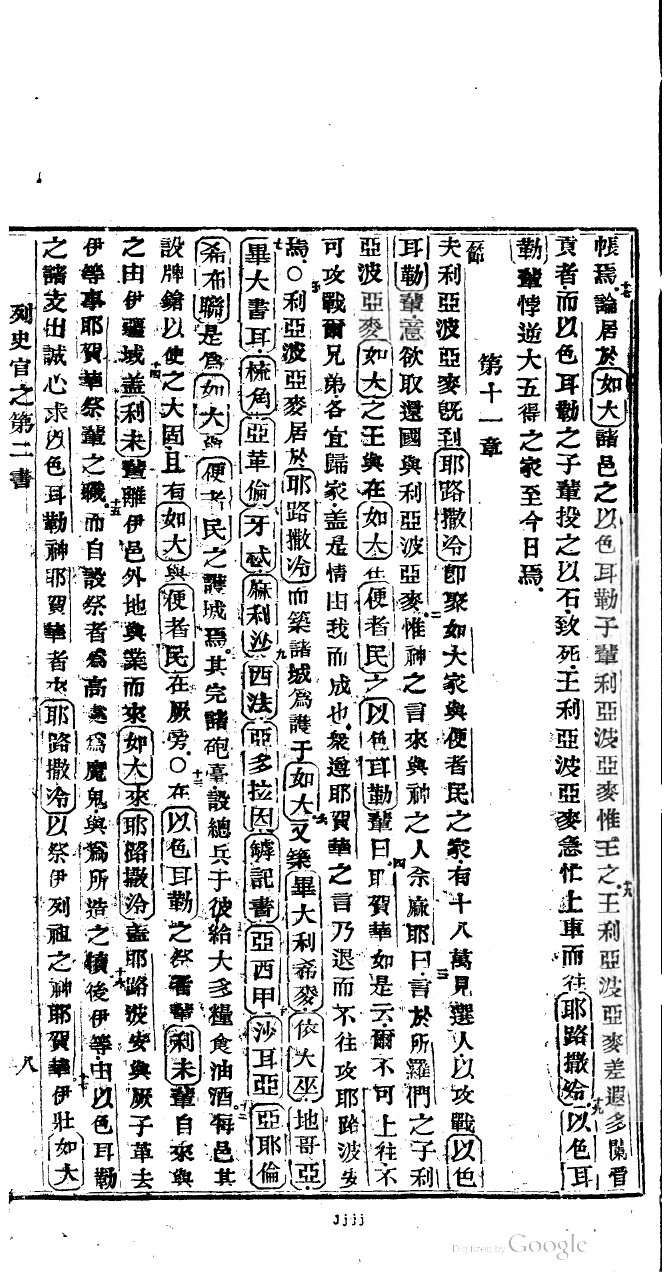 帳焉論居於如大諸邑之以色耳勒子輩利亞波亞麥惟王之王利亞波亞麥差遐多闌督
貢者而以色耳勒之子輩投之以石致死王利亞波亞麥急忙上車而往耶路撒冷以色耳
勒輩悖逆大五得之家至今日焉
第十一章
節夫利亞波亞麥既到耶路撒冷即聚如大家與便者民之家有十八萬見選人以攻戰以色
耳勒輩意欲取還國與利亞波亞麥惟神之言來與神之人佘麻耶曰言於所羅們之子利
亞波亞麥如大之王與在如大在便者民之以色耳勒輩曰耶賀華如是云爾不可上往不
可攻戰爾兄弟各宜歸家蓋是情由我而成也衆遵耶賀華之言乃退而不往攻耶路波安
焉〇利亞波亞麥居於耶路撒冷而築諸城為護于如大又築畢大利希麥依大巫地哥亞
畢大書耳梳角亞華倫牙忒麻利沙西法亞多拉因鱗記書亞西甲沙耳亞亞耶倫
希布聯是為如大與便者民之護城焉其完諸砲臺設總兵于彼給大多糧食油酒每邑其
設牌鎗以使之大固且有如大與便者民在厥旁〇在以色耳勒之祭者輩利未輩自來與
之由伊疆域蓋利未輩離伊邑外地與業而來如大來耶路撒冷蓋耶路波安與厥子革去
伊等事耶賀華祭輩之職而自設祭者為高處為魔鬼與為所造之犢後伊等由以色耳勒
之諸支出誠心求以色耳勒神耶賀華者來耶路撒冷以祭伊列祖之神耶賀華伊壯如大
列史官之第二書
八
Jjjj
Digitized by Google